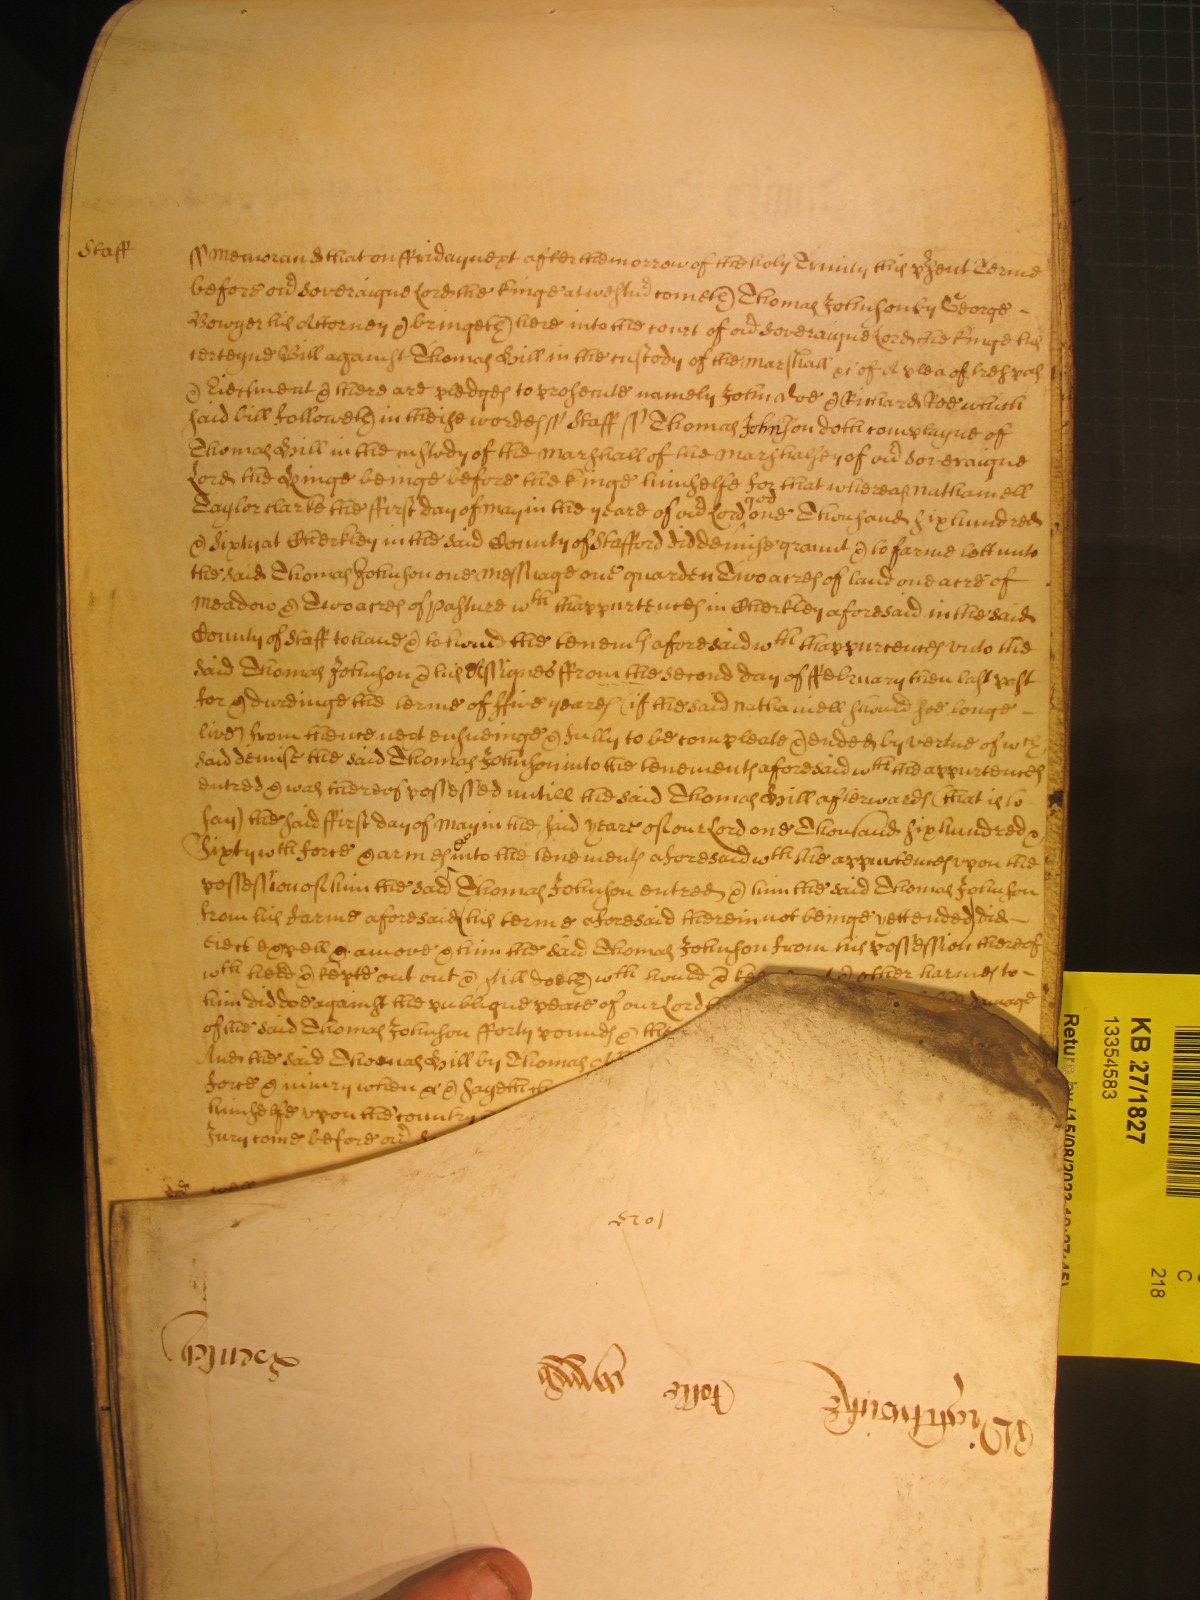 Staff
Memorand that on ffriday next after the morrow of the holy Trinity this psent Terme
before our Soveraigne Lord the Kinge at Westm cometh Thomas Johnson by George
Bowyer his Attorney & bringeth here into the court of our Soveraigne Lord the Kinge his
certeyne Bill against Thomas Hill in the custody of the Marshall &c of A plea of trespas
& Eiectment & there are pledges to prosecute namely John Doe & Richard Roe which
said bill followeth in theise wordes ss Staff ss Thomas Johnson doth complayne of
Thomas Hill in the custody of the Marshall of the Marshalsey of our Soveraigne
Lord the Kinge beinge before the Kinge himselfe for that whereas Nathaniell
Taylor clarke the ffirst day of May in the yeare of our Lord god one Thousand six hundred
& sixty at in the said County of Stafford did demise graunt & to farme lett unto
the said Thomas Johnson one Messuage one guarden Two acres of land one acre of
Meadow & Two acres of Pasture wth thappurtences in aforesaid in the said
County of Staff to have & to hould the tenemts aforesaid wth thappurtences unto the
said Thomas Johnson & his Assignes ffrom the second day of ffebruary then last past
for & dureinge the terme of ffive yeares (if the said Nathaniell should soe longe
live) from thence next ensueinge & fully to be compleate & ended by vertue of wch
said demise the said Thomas Johnson into the tenements aforesaid wth the appurtences
entred & was thereof possessed untill the said Thomas Hill afterwards (that is to
say) the said ffirst day of May in the said yeare of our Lord one Thousand six hundred &
Sixty wth force & armes &c into the tenements aforesaid wth the appurtences upon the
possession of him the said Thomas Johnson entred & him the said Thomas Johnson
from his farme aforesaid (his terme aforesaid therein not beinge yett ended) did
Eiect expell & amove & him the said Thomas Johnson from his possession thereof
wth held & kepte out & still doeth wth hould & & other harmes to
him did doe against the publique peace of our Lord damage
of the said Thomas Johnson fforty pounds &
And the said Thomas Hill by Thomas
force & iniury when &c & sayeth
himselfe upon the country
Jury come before our
1025
KB 27/1827
13354583
Return by (15/08/2023
C
218